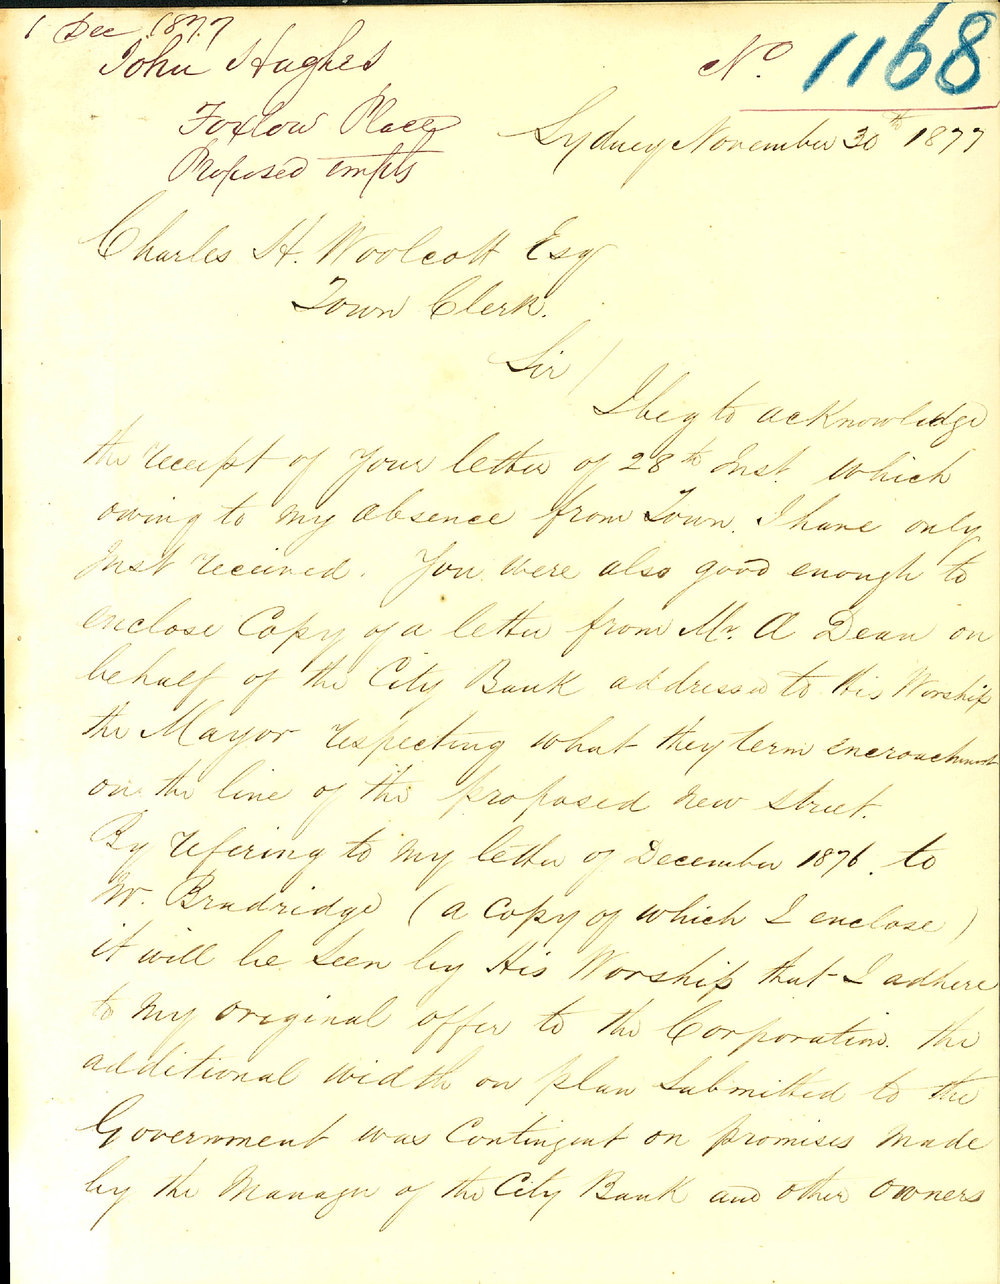 1 Dec 1877
John Hughes
Foxlow Place
Proposed empts
No. 1168
Sydney November 30th 1877
Charles H. Woolcott Esq
Town Clerk.
Sir /
I beg to acknowledge
the receipt of your letter of 28th Inst. which
owing to my absence from Town. I have only
Just received. You were also good enough to
enclose Copy of a letter from Mr. A Dean on
behalf of the City Bank addressed to His Worship
the Mayor respecting what they term encroachment
on the line of the proposed new street.
By refering to my letter of December 1876. to
W. Bradridge (a copy of which I enclose)
it will be seen by His Worship that I adhere
to my original offer to the Corporation. the
additional width on plan submitted to the
Government was Contingent on promises made
by the Manager of the City Bank and other owners